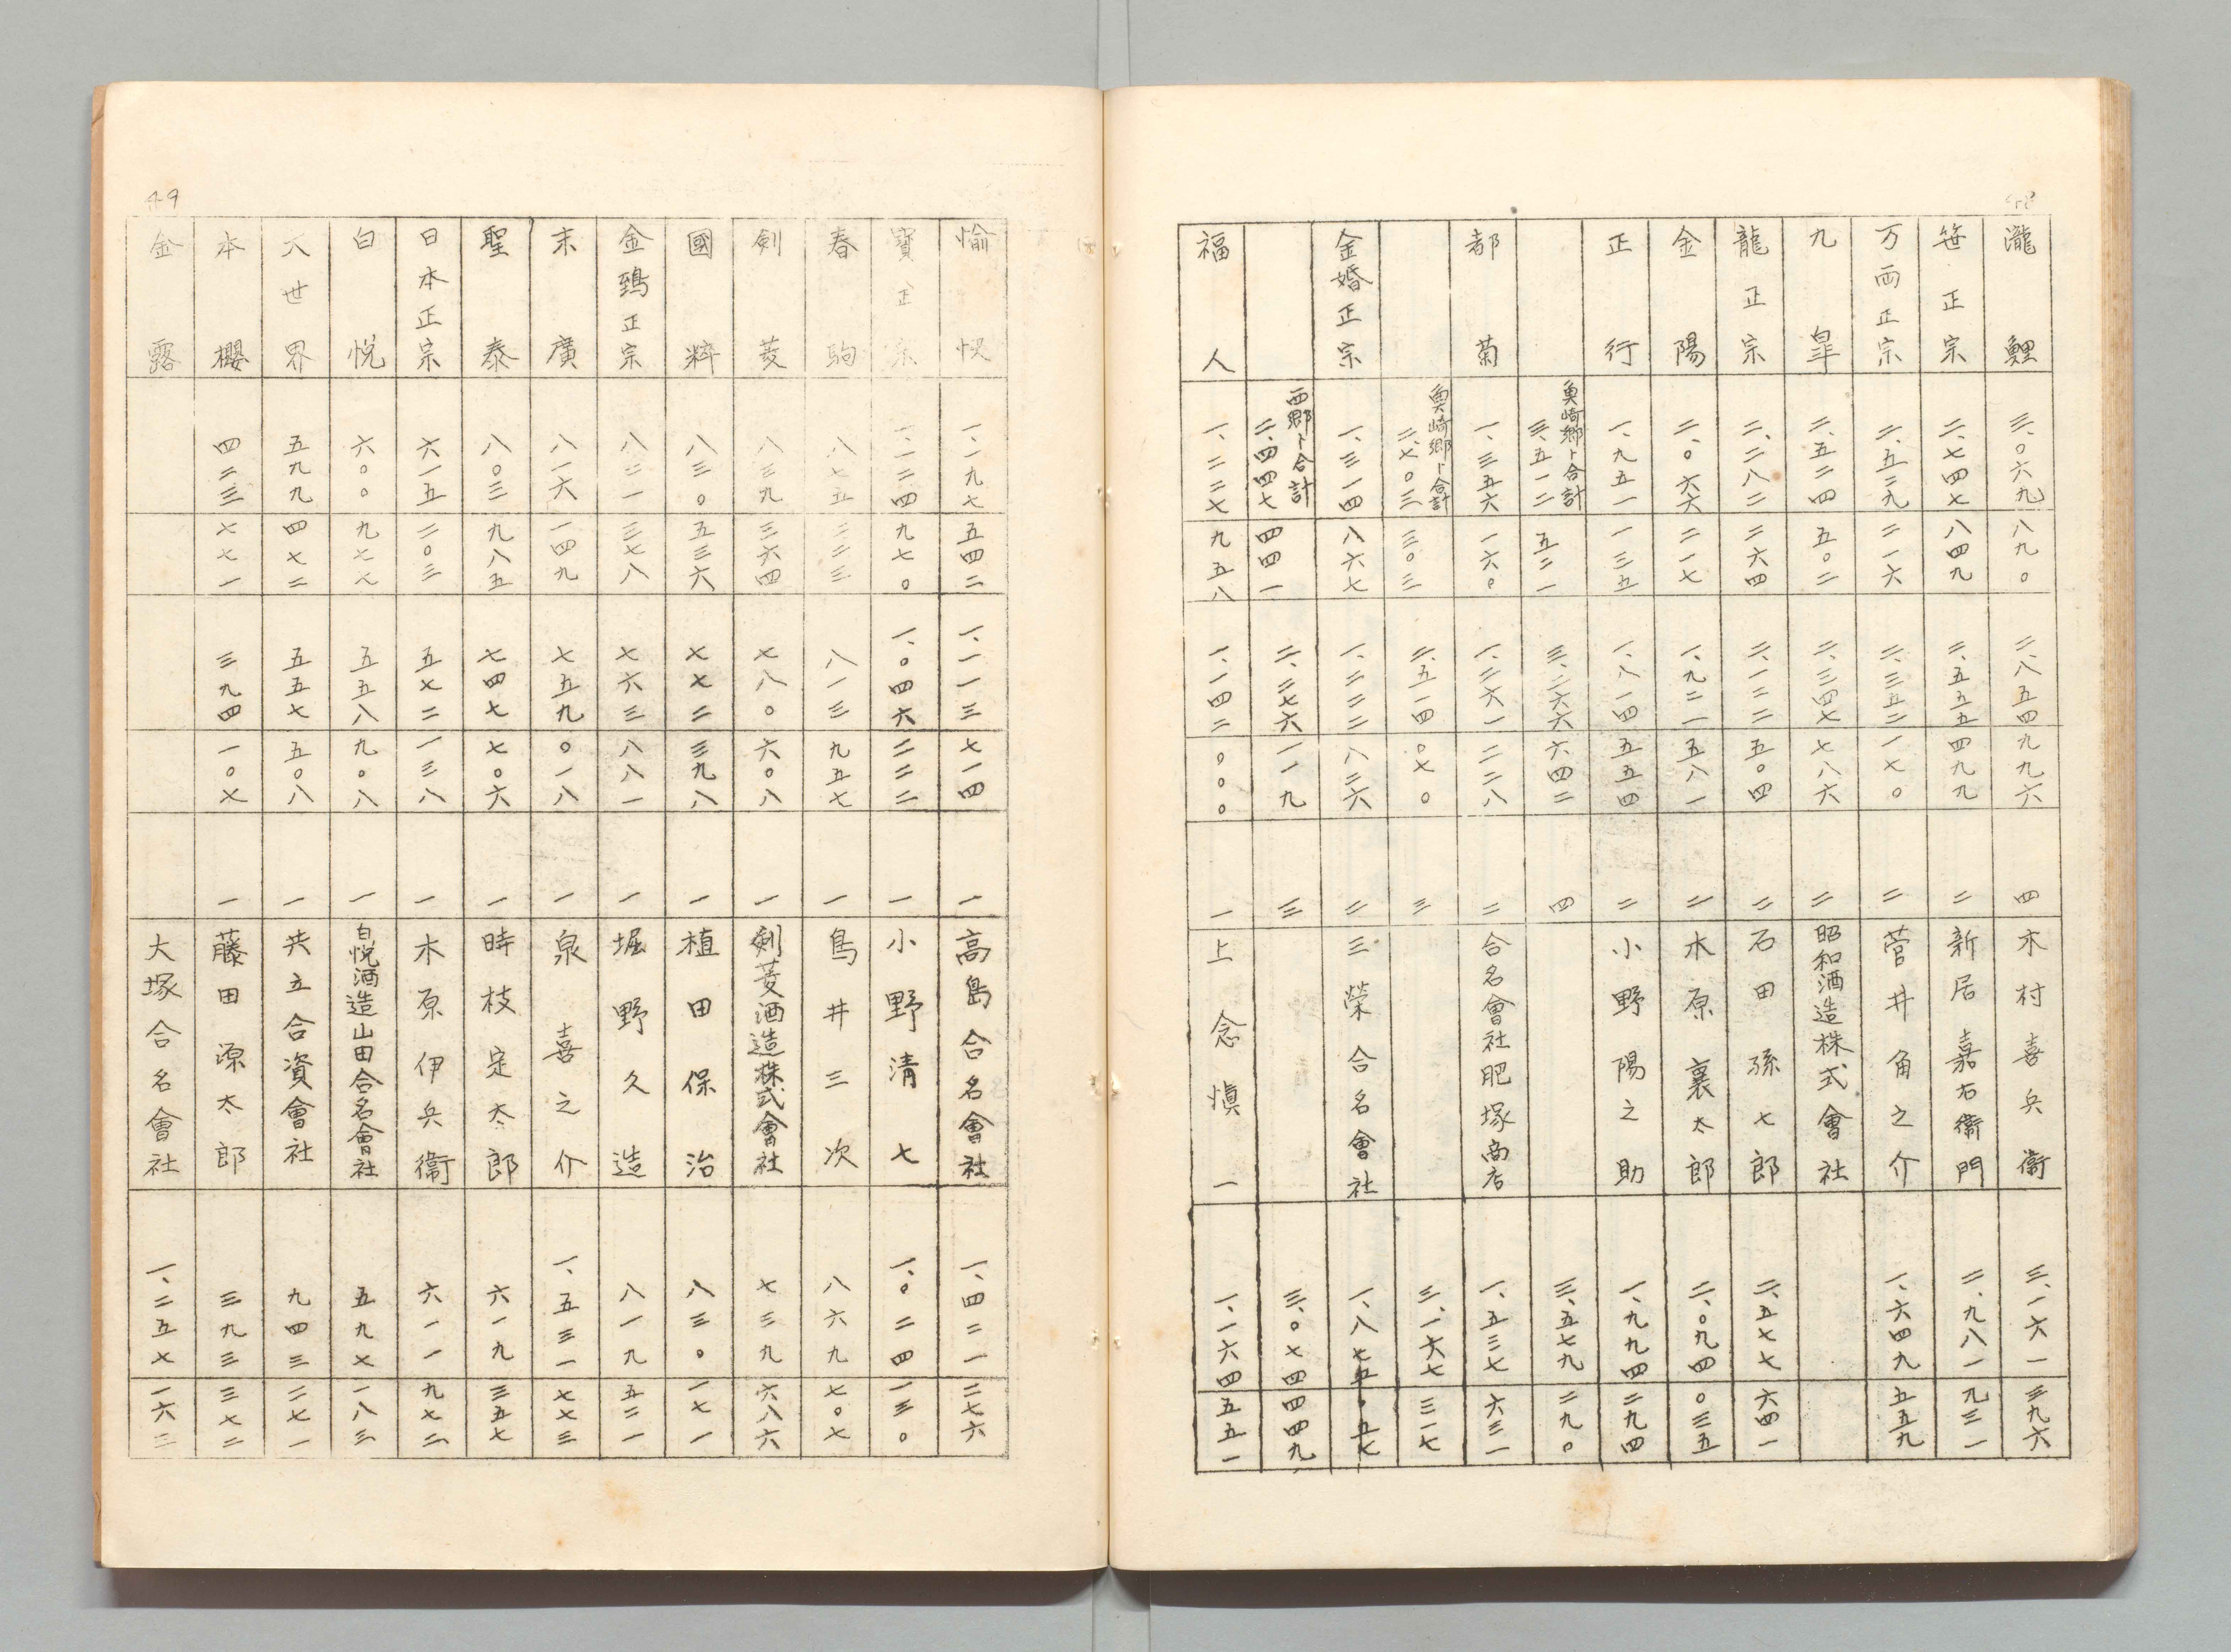 48
瀧鯉 三、〇六九 八九〇 二、八五四 九九六 四 木村喜兵衞 三、一六一 三九六
笹正宗 二、七四七 八四九 二、五五五 四九九 二 新居嘉右衞門 二、九八一 九三一
万両正宗 二、五二九 二一六 二、三五二 一七〇 二 菅井角之介 一、六四九 五五九
九皐 二、五二四 五〇二 二、三四七 七八六 二 昭和酒造株式會社
龍正宗 二、二八二 二六四 二、一二二 五〇四 二 石田孫七郎 二、五七七 六四一
金陽 二、〇六六 二一七 一、九二一 五八一 二 木原裏太郎 二、〇九四 〇三五
正行 一、九五一 一三五 一、八一四 五五四 二 小野陽之助 一、九九四 二九四
魚崎郷ト合計 三、五一二 五二一 三、二六六 六四二 四 三、五七九 二九〇
都菊 一、三五六 一六〇 一、二六一 二二八 二 合名會社肥塚商店 一、五三七 六三一
魚崎郷ト合計 二、七〇三 三〇三 二、五一四 〇七〇 三 三、一六七 三一七
金婚正宗 一、三一四 八六七 一、二二二 八二六 二 三榮合名會社 一、八七五 〇五七
西郷ト合計 二、四四七 四四一 二、二七六 一一九 三 三、〇七四 四四九
福人 一、二二七 九五八 一、一四二 〇〇〇 一 上念愼一 一、一六四 五五一
49
愉快 一、一九七 五四二 一、一一三 七一四 一 高島合名會社 一、四二一 二七六
寶正宗 一、一二四 九七〇 一、〇四六 二二二 一 小野清七 一、〇二四 一三〇
春駒 八七五 二二三 八一三 九五七 一 鳥井三次 八六九 七〇七
剣菱 八三九 三六四 七八〇 六〇八 一 剣菱酒造株式會社 七三九 六八六
國粹 八三〇 五三六 七七二 三九八 一 植田保治 八三〇 一七一
金鵄正宗 八二一 三七八 七六三 八八一 一 堀野久造 八一九 五二一
末廣 八一六 一四九 七五九 〇一八 一 泉喜之介 一、五三一 七七三
聖泰 八〇三 九八五 七四七 七〇六 一 時枝定太郎 六一九 三五七
日本正宗 六一五 二〇三 五七二 一三八 一 木原伊兵衞 六一一 九七二
白悦 六〇〇 九七七 五五八 九〇八 一 白悦酒造山田合名會社 五九七 一八三
大世界 五九九 四七二 五五七 五〇八 一 共立合資會社 九四三 二七一
本櫻 四二三 七七一 三九四 一〇七 一 藤田源太郎 三九三 三七二
金露 大塚合名會社 一、二五七 一六二